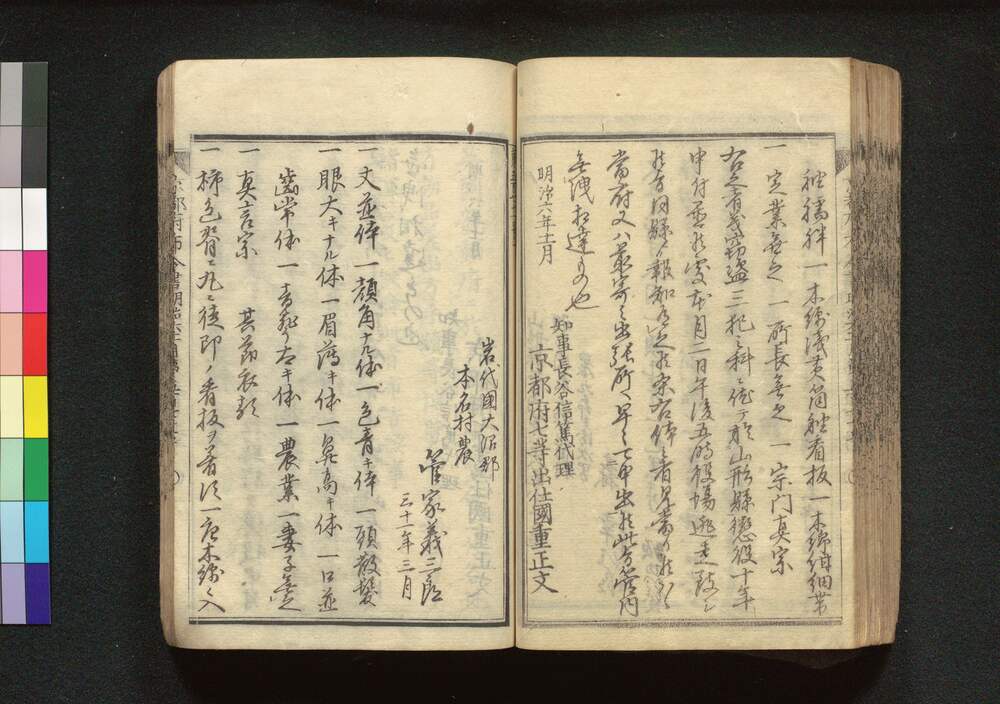 一木綿浅黄筒袖看板一木綿紺細帯
一定業無之 一所長無之 一宗門真宗
右之者義窃盗三犯之科ニ依テ於山形縣懲役十年
申付置候処本月二日午後五時役場逃走致シ
候旨同縣ヨリ報知有之候条右体之者見当リ候ハヽ
当府又ハ最寄之出張所ヘ早々可申出候此旨管内
無洩相達るもの也
明治六年十一月
知事長谷信篤代理
京都府七等出仕國重正文
岩代國大沼郡
本名村農
菅家義三郎
三十一年三月
一丈並体 一顔角ナル体 一色青キ体 一頭散髪
一眼大キナル体 一眉薄キ体 一鼻高キ体 一口並
歯常体 一言舌 キ体 一農業 一妻子無之
一真言宗 其節衣類
一柿色背ニ丸ニ徒印ノ看板ヲ着須一唐木綿